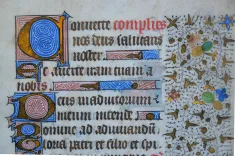 Converte complies
nos deus salutaris
noster
Et averte iram tuam a
nobis
Deus in adiutorium
meum intende
Domine ad adiuvandum
Gloria patri et filio et spi